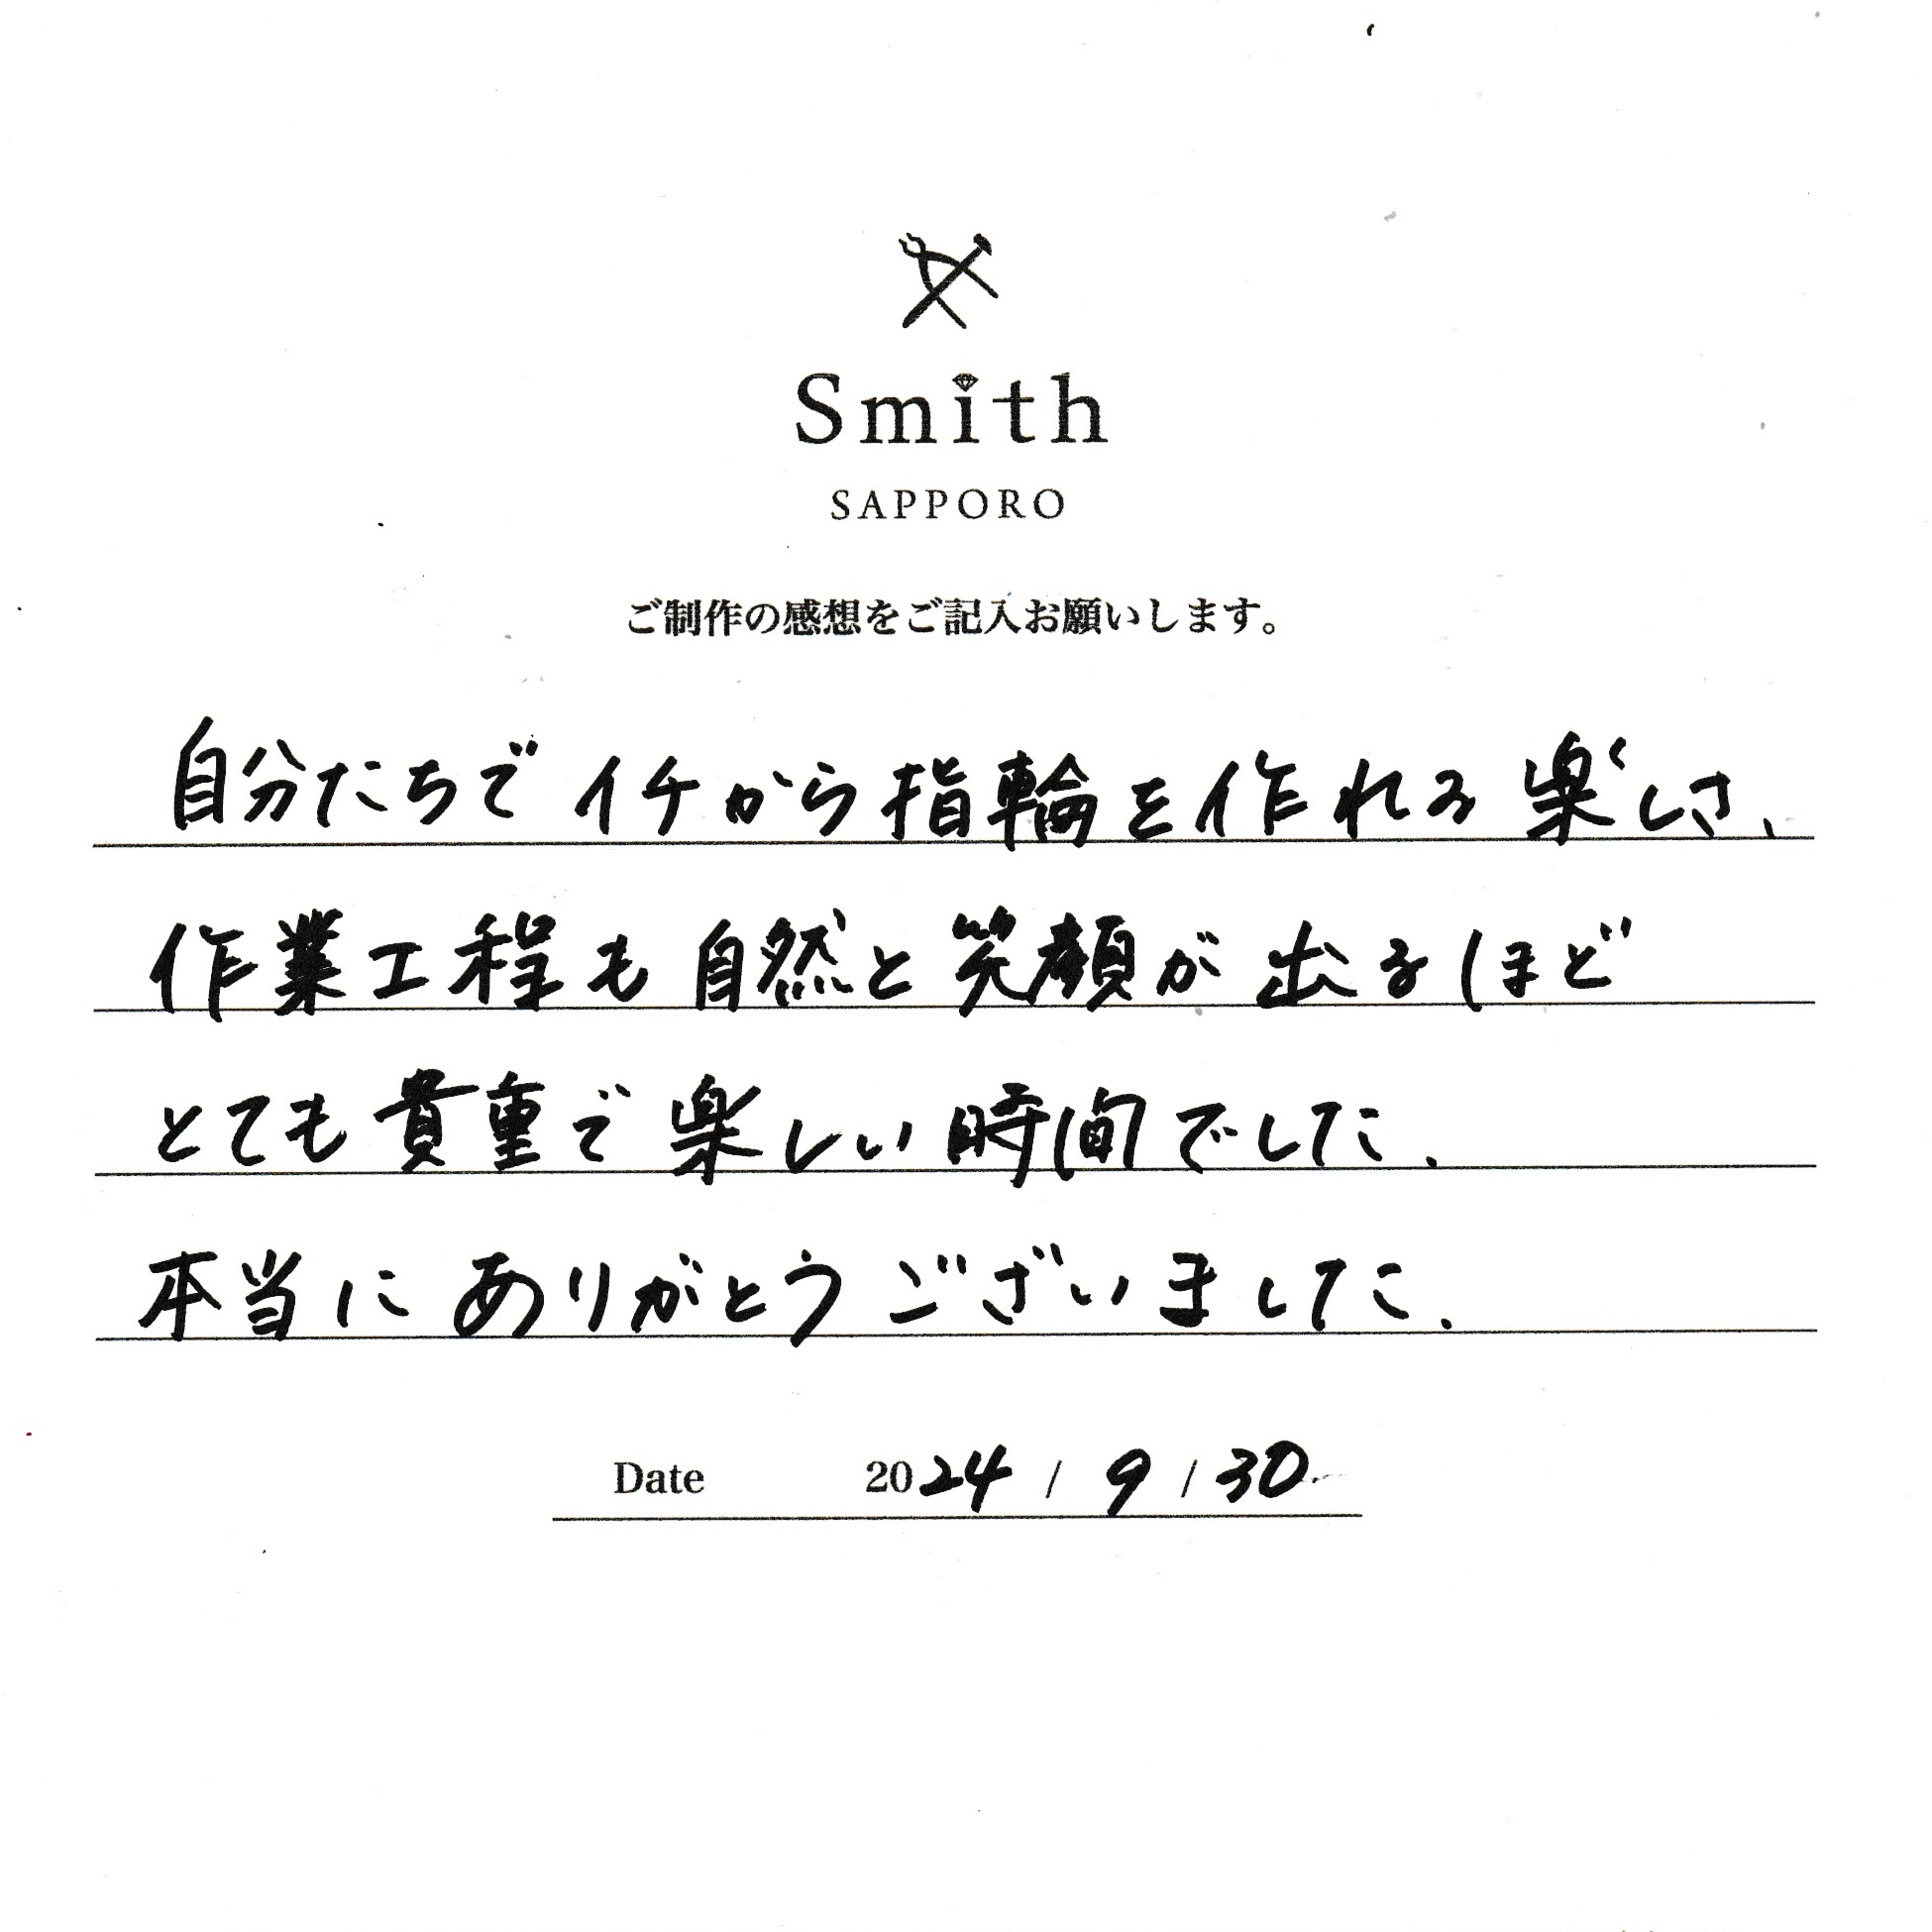 Smith
SAPPORO
ご制作の感想をご記入お願いします。
自分たちでイチから指輪を作れる楽しさ、
作業工程も自然と笑顔が出るほど
とても貴重で楽しい時間でした.
本当にありがとうございました.
Date 2024 / 9 / 30